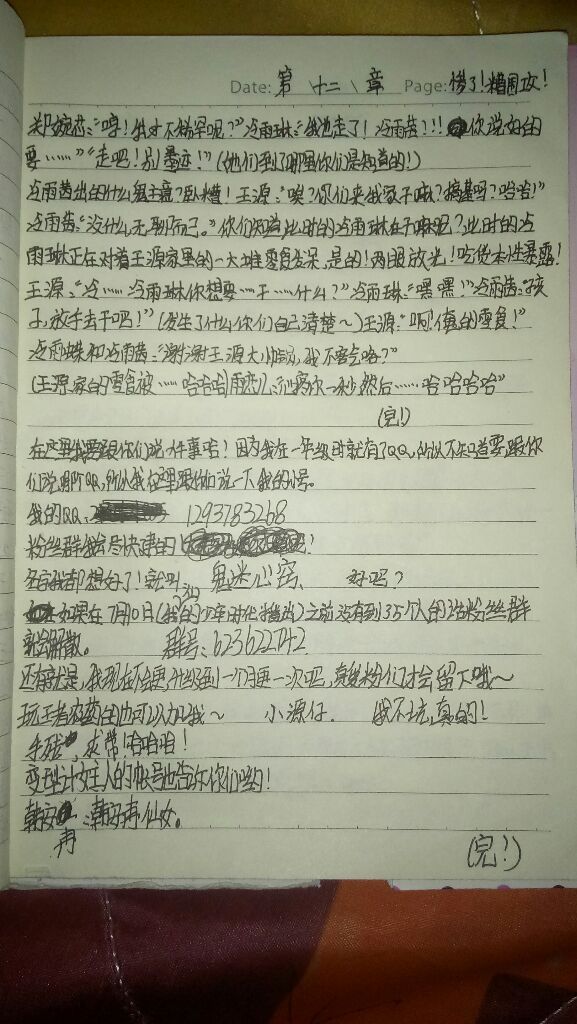 Date: 第十二章 Page: 惨了!糟围攻!
郑婉芯:“哼!我才不稀罕呢?”冷雨琳:“我也走了!冷雨茜?!!你说好的
要……”“走吧!别墨迹!”(他们到了哪里你们是知道的!)
冷雨茜出的什么鬼主意?卧槽!王源:“唉?你们来我家干嘛?搞基吗?哈哈!”
冷雨茜:“没什么,无聊而已。”你们知道此时的冷雨琳在干嘛呢?此时的冷
雨琳正在对着王源家里的一大堆零食发呆,是的!两眼放光!吃货本性暴露!
王源:“冷……冷雨琳你想要…干……什么?”冷雨琳:“嘿嘿!”冷雨茜:“孩
子,放手去干吧!”(发生了什么你们自己清楚~)王源:“啊!俺的零食!”
冷雨蝶和冷雨茜:“谢谢王源大帅哥,我不客气咯?”
(王源家的零食被……哈哈哈)雨恋儿:沉痛一秒,然后……哈哈哈哈”
(完!)
在这里我要跟你们说一件事哈!因为我在一年级时就有了QQ,所以不知道要跟你
们说那个QQ,所以我在这里跟你们说一下我的小号。
我的QQ: 1293783268
粉丝群我会尽快建的!
名字我都想好了!就叫:鬼迷心窍、好吗?
如果在7月10日(我的少年时代播出)之前没有到35个人的话粉丝群
就会解散。 群号:623622742
还有就是,我现在不会更,升级到一个月更一次吧,真爱粉们才会留下哦~
玩王者农药的也可以加我~ 小源仔. 我不坑,真的!
手残,求带!哈哈哈!
变型计女主人的帐号也告诉你们哟!
韩安冉:韩安冉仙女。
(完!)